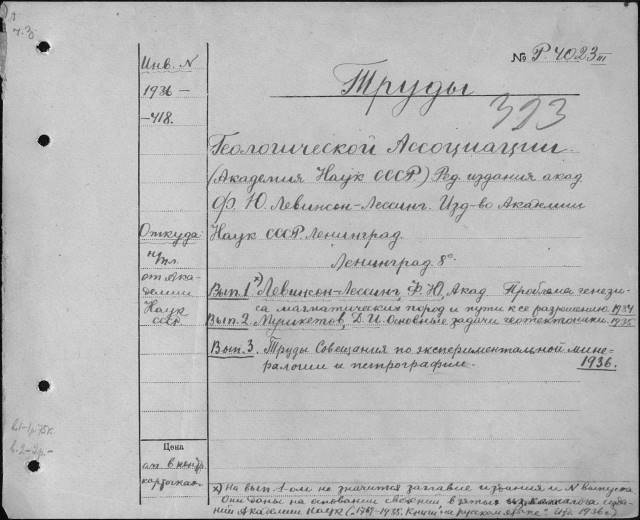 № Р. 4023 III
Инв. N
1936 —
— 418.
Труды
393
Геологической Ассоциации.
(Академия Наук СССР.) Ред. издания акад.
Ф. Ю. Левинсон-Лессинг. Изд-во Академии
Наук СССР. Ленинград.
Ленинград 8°.
Откуда:
от Ака-
демии
Наук
СССР
Вып. 1 х) Левинсон-Лессинг, Ф. Ю., Акад. Проблема генези-
са магматических пород и пути к ее разрешению. 1934.
Вып. 2. Мушкетов, Д. И. Основные задачи геотектоники. 1935.
Вып. 3. Труды Совещания по экспериментальной мине-
ралогии и петрографии. 1936.
в. 1-1р. 75к.
в. 2-2р.-
Цена
см. в контр.
карточках.
х) На вып. 1-ом не значится заглавие издания и N выпуска
Они даны на основании сведений взятых из каталога изда-
ний Академии Наук ("1917-1935. Книги на русском языке" Изд. 1936 г.)